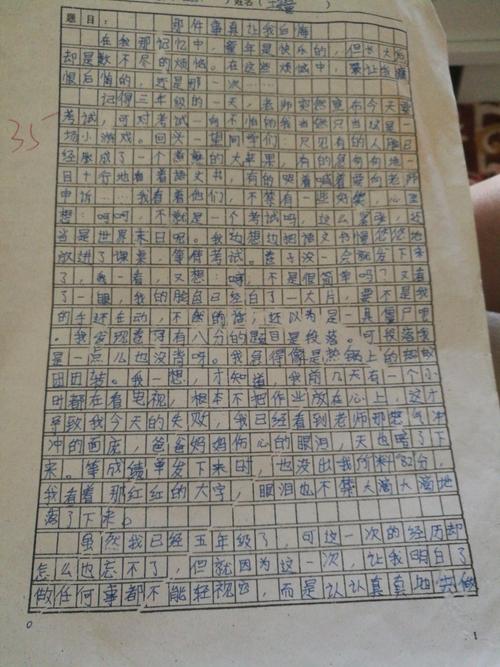 姓名
题目： 那件事真让我后悔
在我那记忆中，童年是快乐的，但长大后
却是数不尽的烦恼。在这些烦恼中，最让我
恨后悔的，还是那一次……
记得三年级的一天，老师突然宣布今天要
35
考试，可对考试一向不怕的我当然只当这是一
场小游戏。回头一望同学们：只见有的人脸已
经胀成了一个通红的大苹果，有的急匆匆地一
目十行地看着语文书，有的哭着喊着要向老师
申诉……我看着他们，不禁有一些好笑，心里
想：呵呵，不就是一个考试吗，这么紧张，还
当是世界末日呢。我边想边把语文书慢悠悠地
放进了课桌，等待考试。卷子没一会就发下来
了，我一看，又想：嘿，不是很简单吗？又看
了一眼，我的脸色已经白了一大片，要不是我
的手还在动，不然的话，还以为是一具僵尸呢
。我发现卷子有八分的题目是段落。可段落我
是一点儿也没背呀。我急得像是热锅上的蚂蚁
团团转。我一想，才知道，我前几天有一个小
时都在看电视，根本不把作业放在心上，这才
导致我今天的失败，我已经看到老师那怒气冲
冲的面庞，爸爸妈妈伤心的眼泪，天也暗了下
来。等成绩单发下来时，也没出我所料82分，
我看着那红红的大字，眼泪也不禁大滴大滴地
落了下来。
虽然我已经五年级了，可这一次的经历却
怎么也忘不了，但就因为这一次，让我明白了
做任何事都不能轻视它，而是认认真真地去做
1